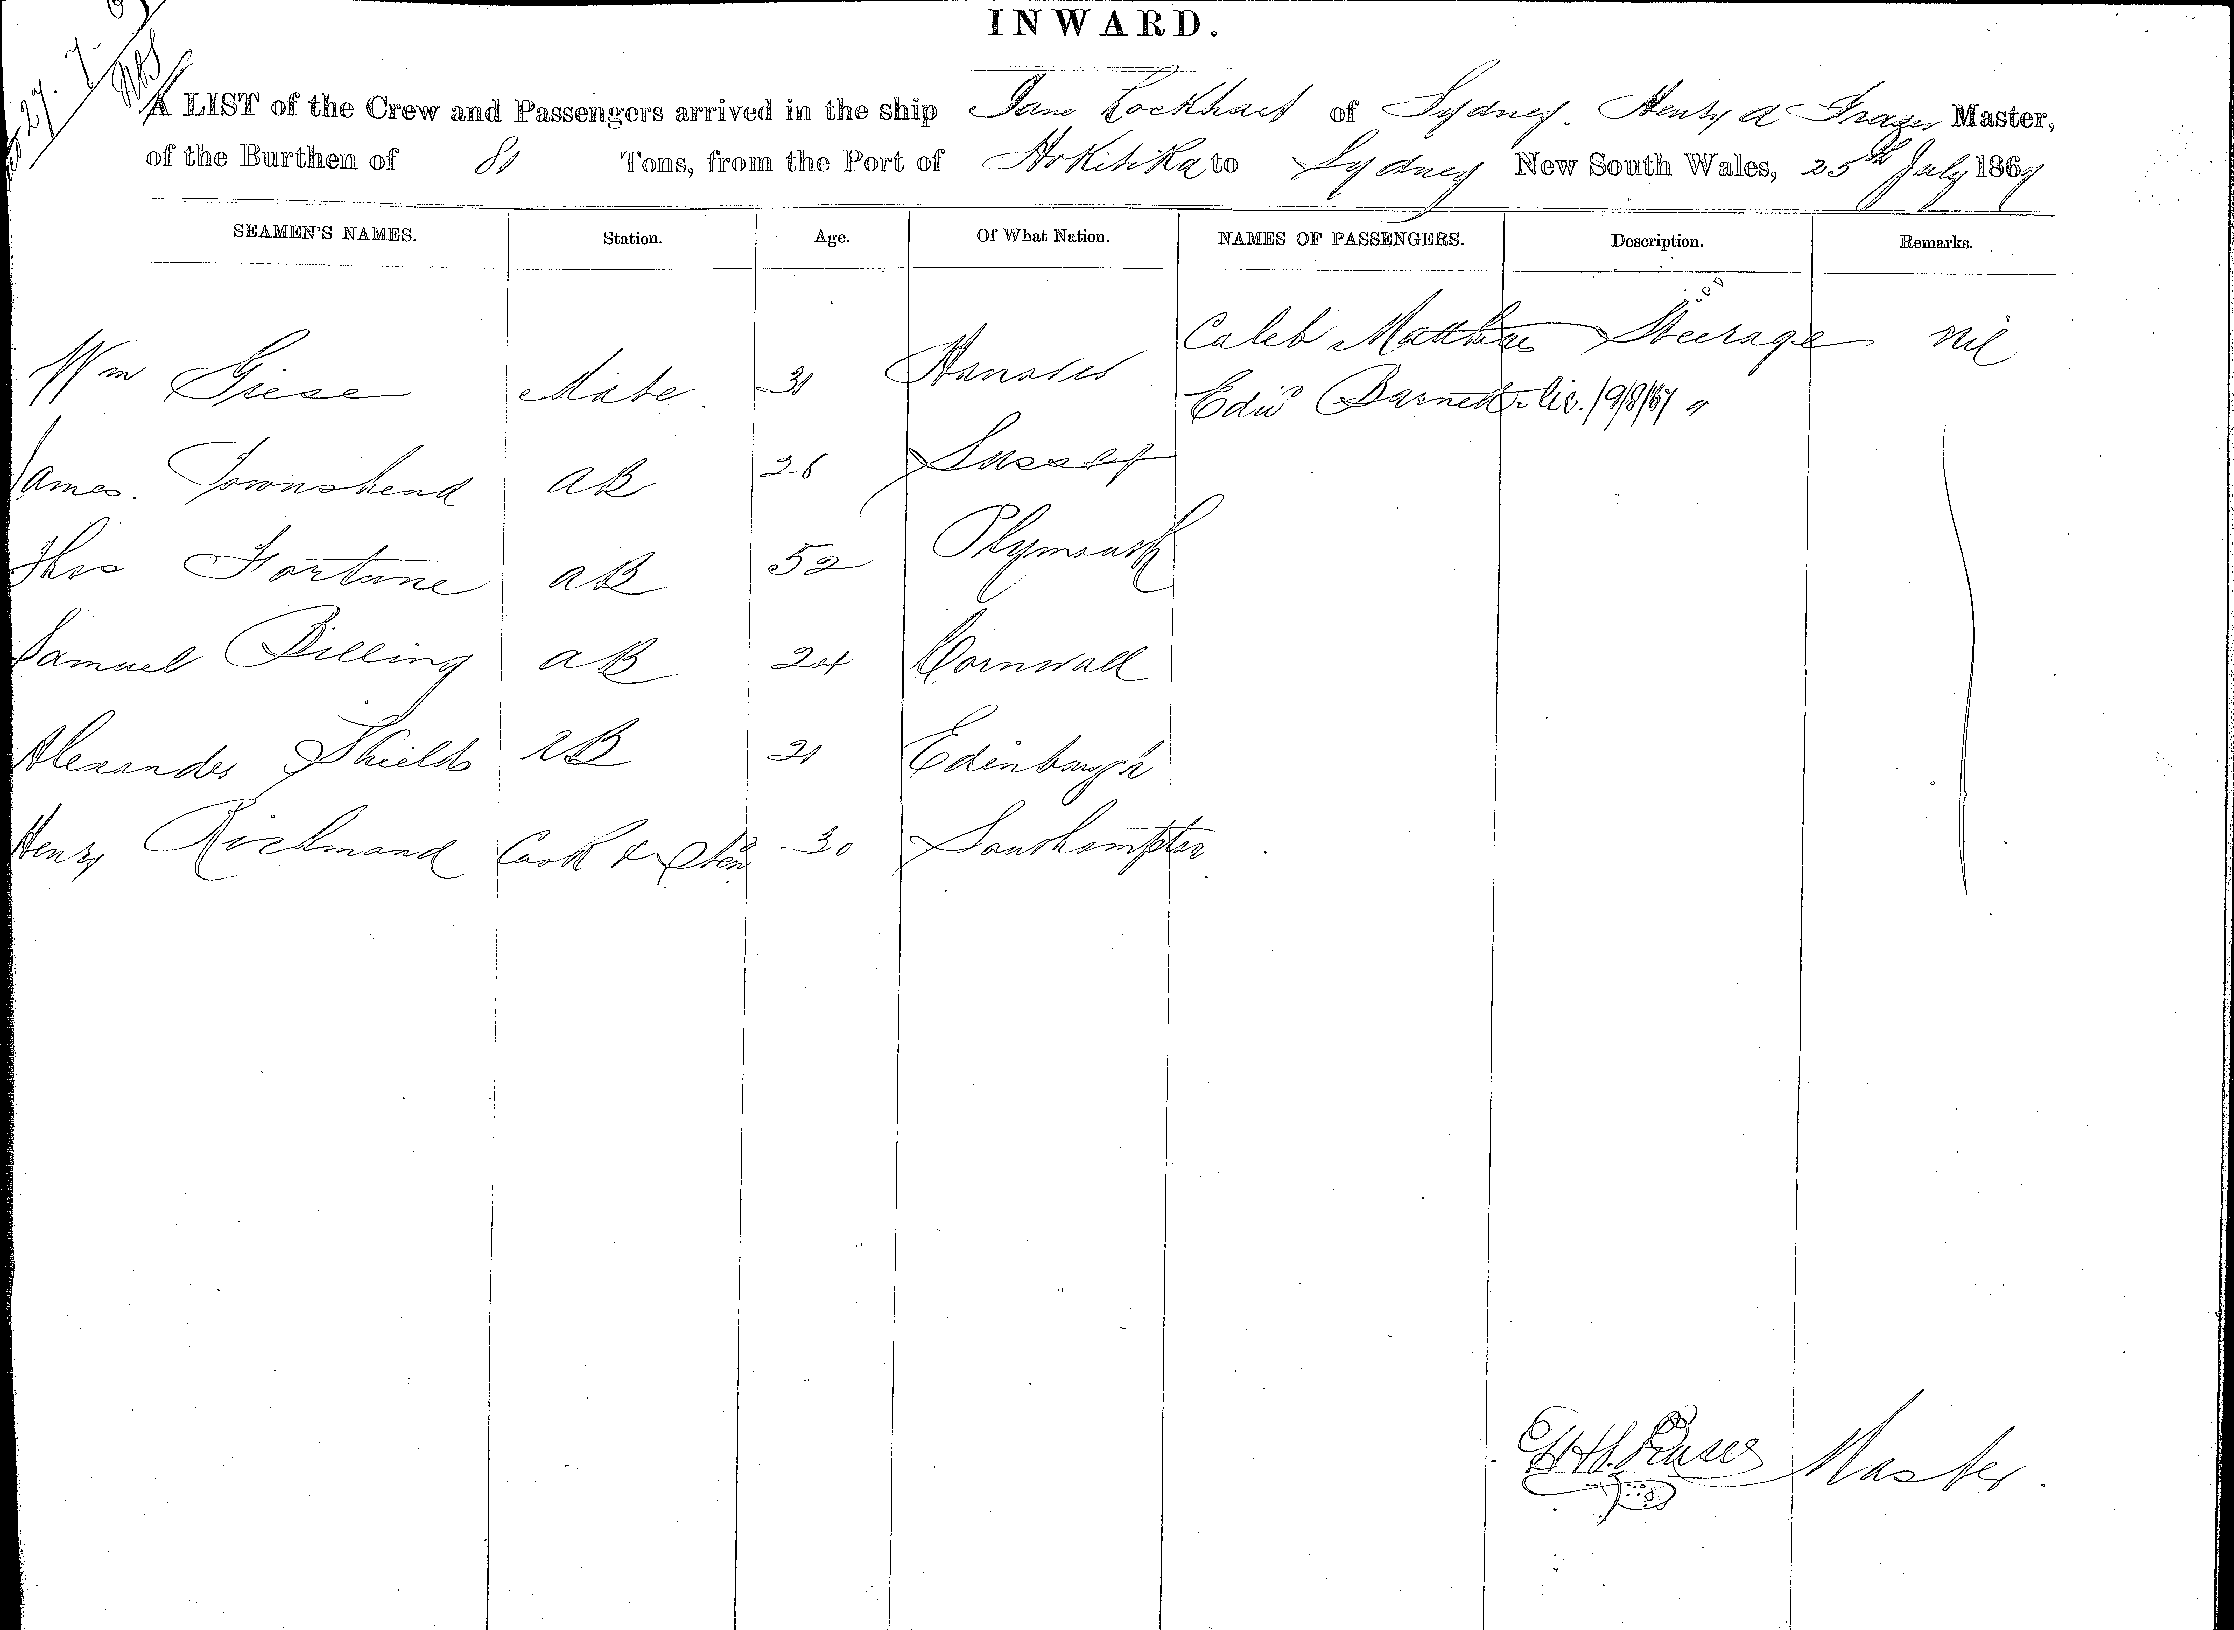 INWARD.
A LIST of the Crew and Passengers arrived in the ship Jane Lockhart of Sydney. Henry A Fraser Master,
of the Burthen of 81 Tons, from the Port of Hokitika to Sydney New South Wales, 25th July 1867
SEAMEN'S NAMES. Station. Age. Of What Nation. NAMES OF PASSENGERS. Description. Remarks.
Caleb Matthews Steerage Nil
Wm Giese Mate 31 Hanover
Edwd Barnett 19/8/67 "
James. Townshend AB 26 Sussex
Thos Fortune AB 52 Plymouth
Samuel Billing AB 24 Cornwall
Alexander Shields AB 21 Edinburgh
Henry Richmond Cook & Stew 30 Southampton
Fraser Master.